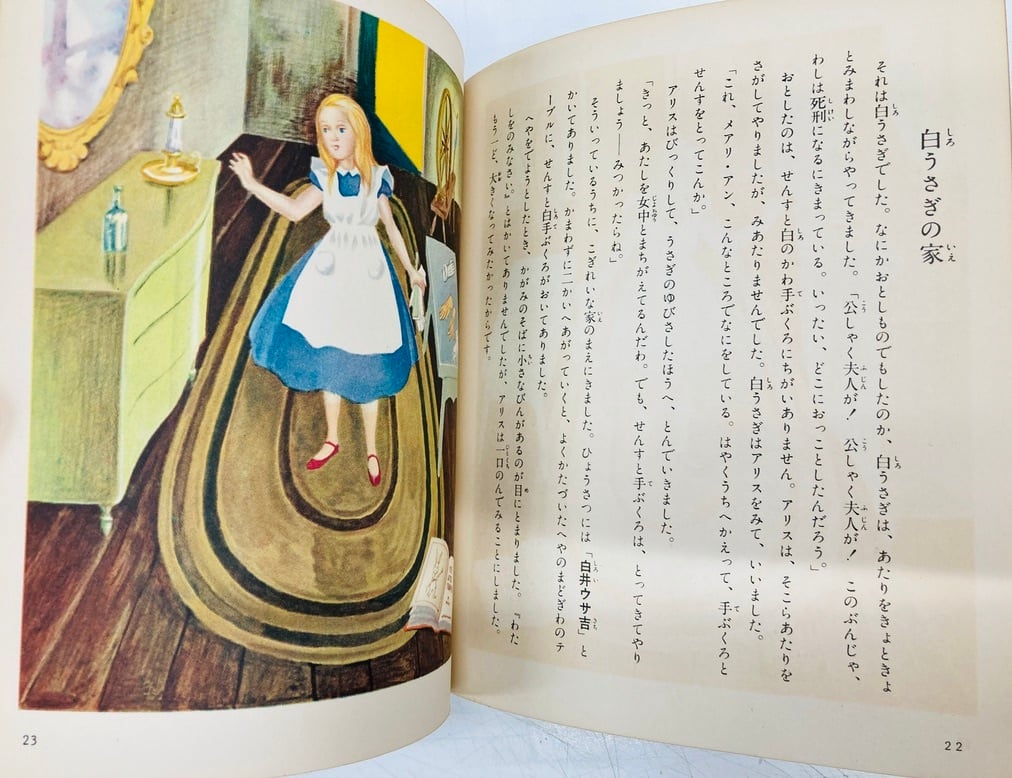 白うさぎの家
それは白うさぎでした。なにかおとしものでもしたのか、白うさぎは、あたりをきょときょ
とみまわしながらやってきました。「公しゃく夫人が！　公しゃく夫人が！　このぶんじゃ、
わしは死刑になるにきまっている。いったい、どこにおっことしたんだろう。」
おとしたのは、せんすと白のかわ手ぶくろにちがいありません。アリスは、そこらあたりを
さがしてやりましたが、みあたりませんでした。白うさぎはアリスをみて、いいました。
「これ、メアリ・アン、こんなところでなにをしている。はやくうちへかえって、手ぶくろと
せんすをとってこんか。」
アリスはびっくりして、うさぎのゆびさしたほうへ、とんでいきました。
「きっと、あたしを女中とまちがえてるんだわ。でも、せんすと手ぶくろは、とってきてやり
ましょう――みつかったらね。」
そういっているうちに、こぎれいな家のまえにきました。ひょうさつには「白井ウサ吉」と
かいてありました。かまわずに二かいへあがっていくと、よくかたづいたへやのまどぎわのテ
ーブルに、せんすと白手ぶくろがおいてありました。
へやをでようとしたとき、かがみのそばに小さなびんがあるのが目にとまりました。『わた
しをのみなさい。』とはかいてありませんでしたが、アリスは一口のんでみることにしました。
もう一ど、大きくなってみたかったからです。
22
23